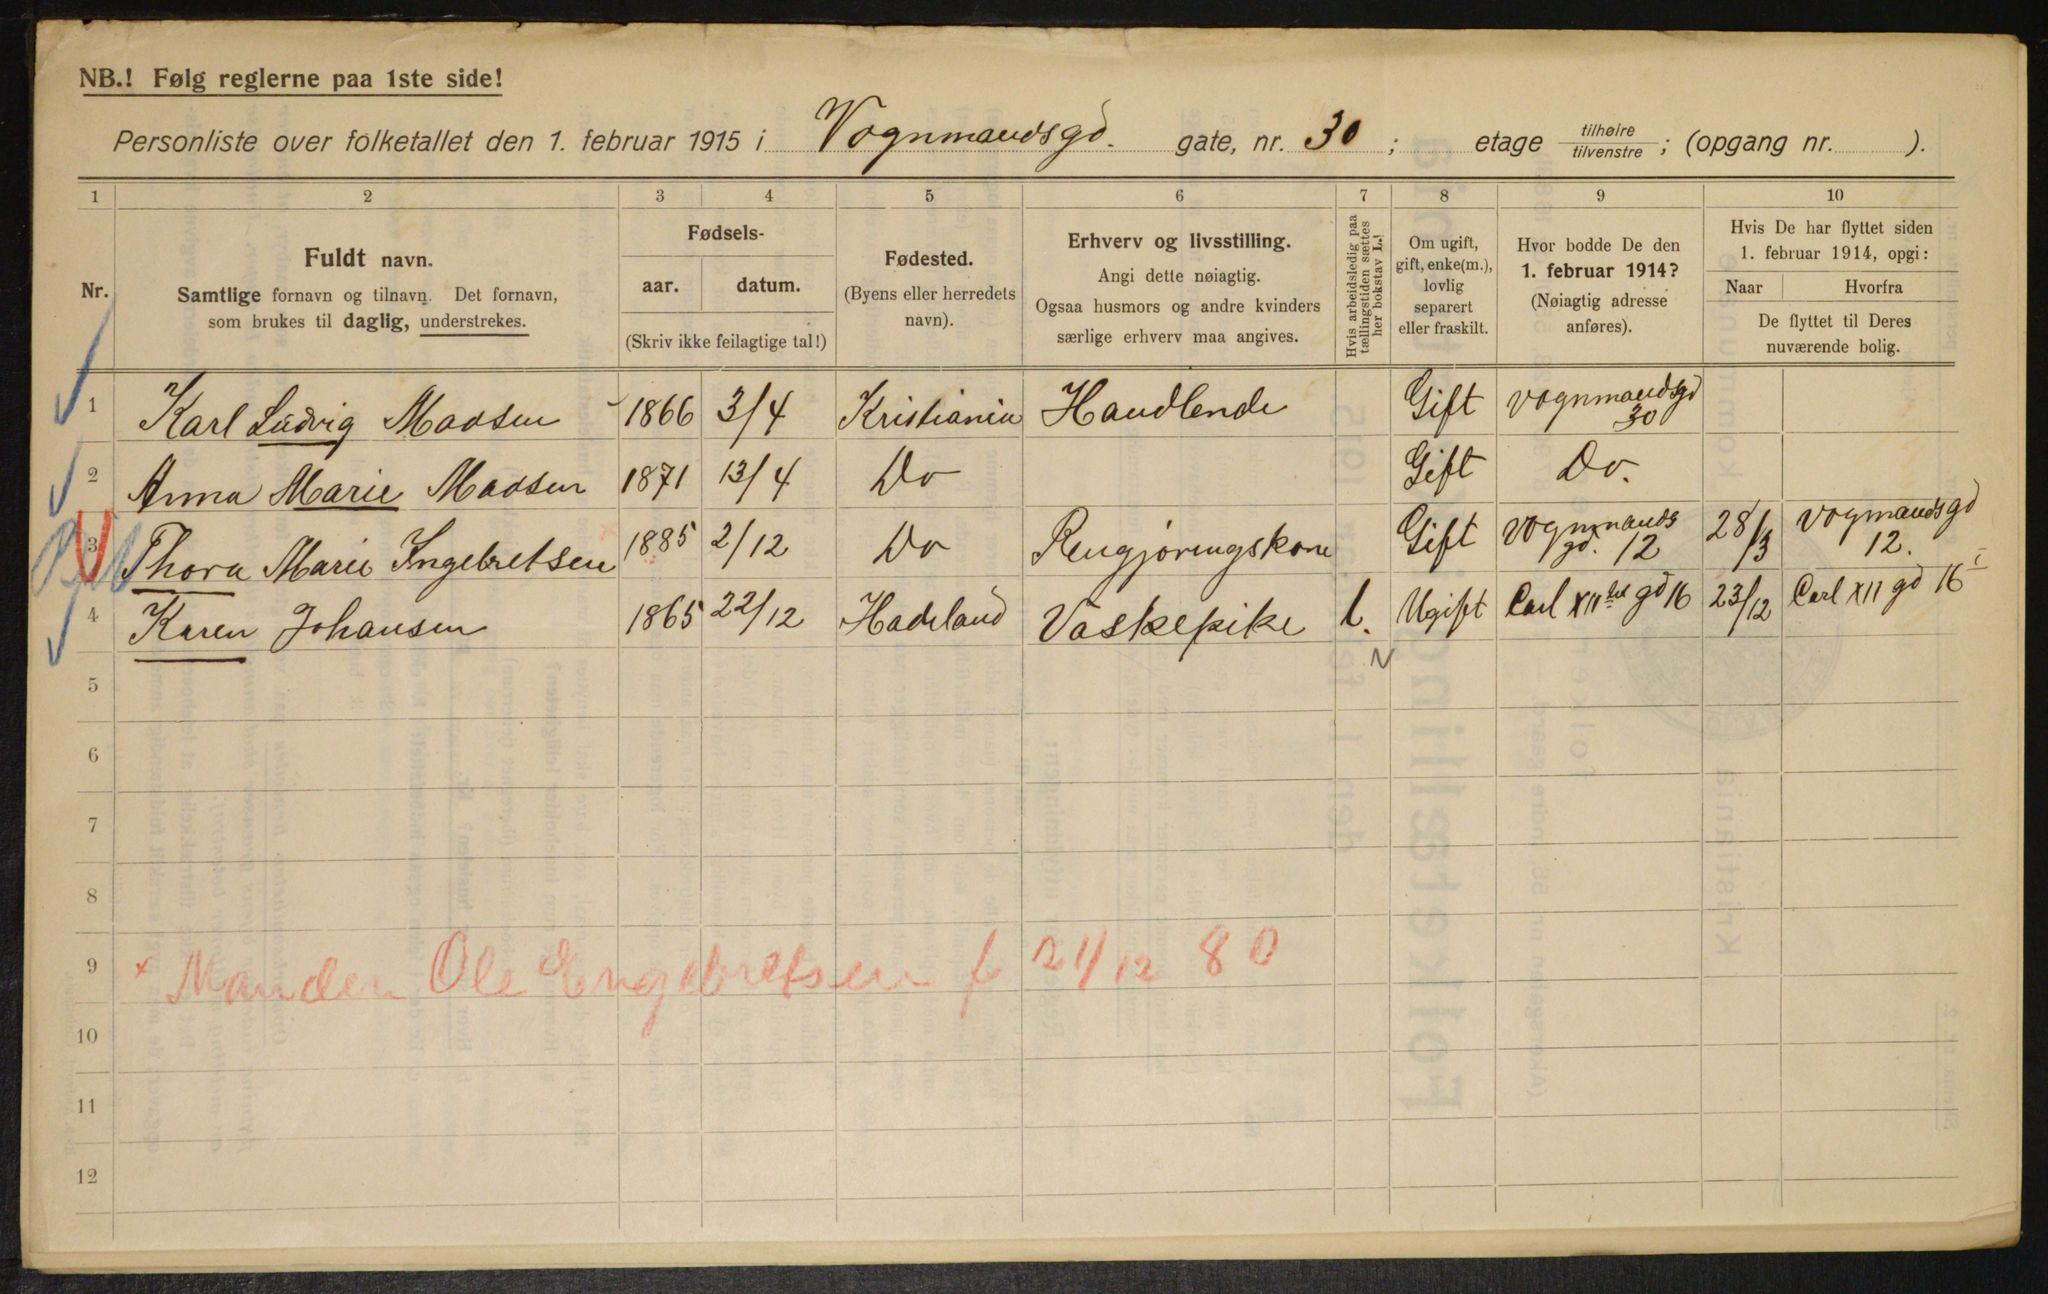 NB.! Følg reglerne paa 1ste side!
Personliste over folketallet den 1. februar 1915 i Vognmandsgd. gate, nr. 30 ; etage tilhøire / tilvenstre ; (opgang nr. ).
1 2 3 4 5 6 7 8 9 10
Nr.
Fuldt navn.
Samtlige fornavn og tilnavn. Det fornavn,
som brukes til daglig, understrekes.
Fødsels-
aar. datum.
(Skriv ikke feilagtige tal!)
Fødested.
(Byens eller herredets
navn).
Erhverv og livsstilling.
Angi dette nøiagtig.
Ogsaa husmors og andre kvinders
særlige erhverv maa angives.
Hvis arbeidsledig paa
tællingstiden sættes
her bokstav L.!
Om ugift,
gift, enke(m.),
lovlig
separert
eller fraskilt.
Hvor bodde De den
1. februar 1914?
(Nøiagtig adresse
anføres).
Hvis De har flyttet siden
1. februar 1914, opgi:
Naar Hvorfra
De flyttet til Deres
nuværende bolig.
1 Karl Ludvig Madsen 1866 3/4 Kristiania Handlende Gift Vognmandsgd 30
2 Anna Marie Madsen 1871 13/4 Do Gift Do.
3 Thora Marie Ingebretsen 1885 2/12 Do Rengjøringskone Gift Vognmands gd. 12 28/3 Vogmandsgd 12.
4 Karen Johansen 1865 22/12 Hadeland Vaskepike l. Ugift Carl XII tes gd 16 23/12 Carl XII gd 16 I
N
5
6
7
8
9 × Manden Ole Engebretsen f 21/12 80
10
11
12